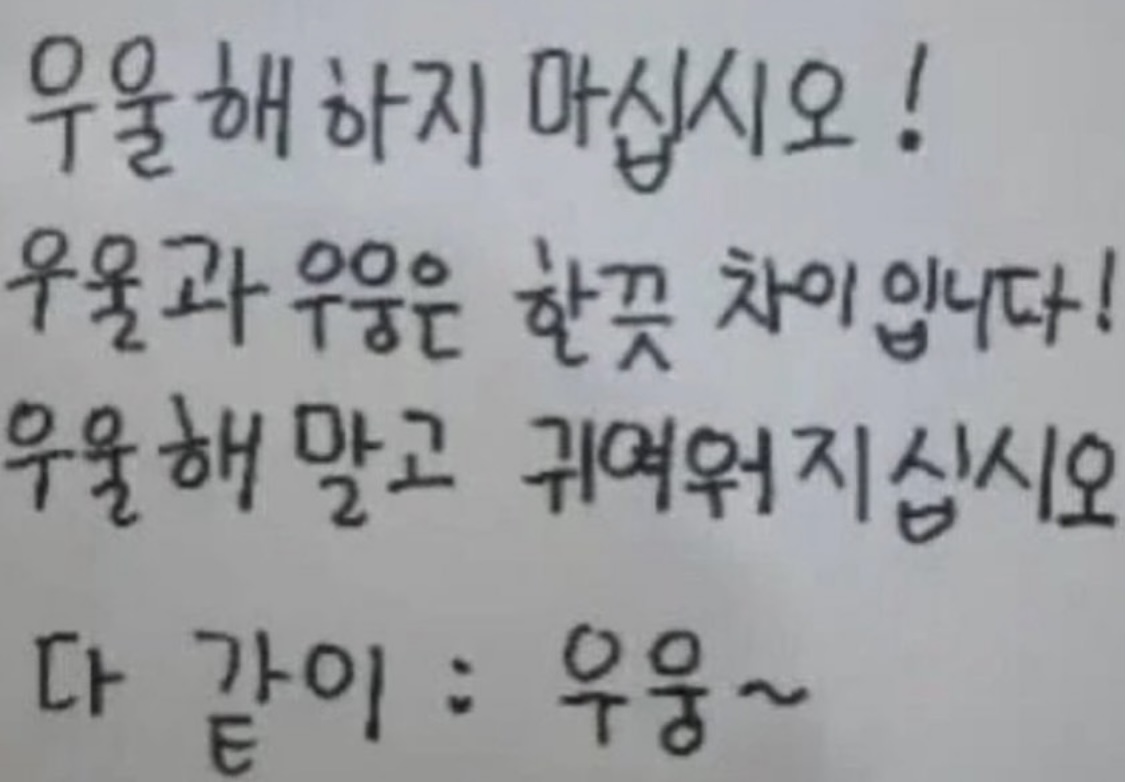 우울해하지 마십시오!
우울과 우웅은 한끗 차이입니다!
우울해 말고 귀여워지십시오
다 같이 : 우웅~